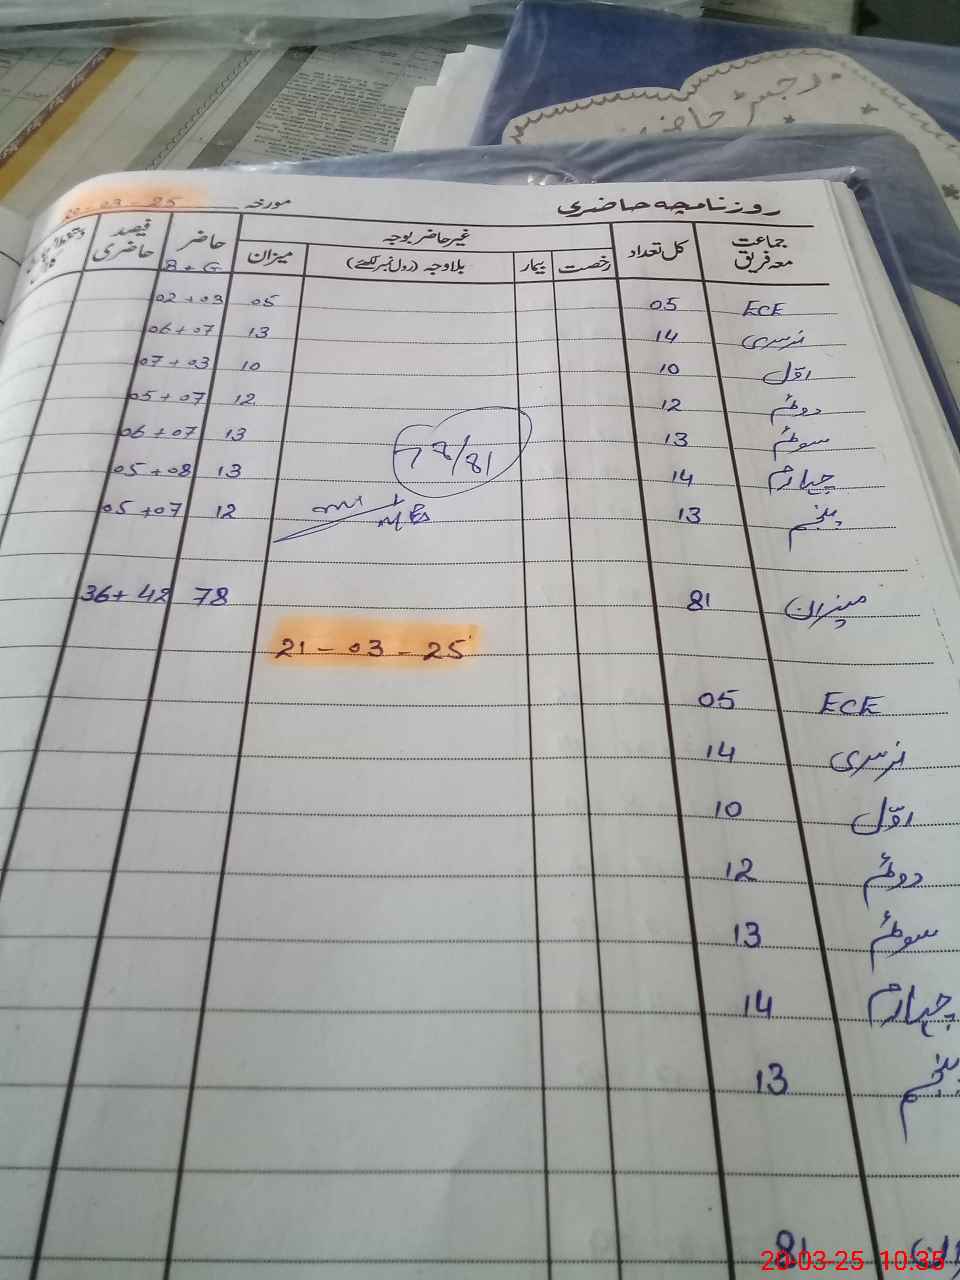 رجسٹر حاضری
روزنامچہ حاضری مورخہ 20-03-25
جماعت معہ فریق کل تعداد غیر حاضر بوجہ حاضر فیصد حاضری
رخصت بیمار بلاوجہ (رول نمبر لکھئے) میزان B+G
ECE 05 05 02+03
نرسری 14 13 06+07
اوّل 10 10 07+03
دوئم 12 12 05+07
سوئم 13 13 06+07
78/81
چہارم 14 13 05+08
پنجم 13 12 05+07
میزان 81 78 36+42
21-03-25
ECE 05
نرسری 14
اوّل 10
دوئم 12
سوئم 13
چہارم 14
پنجم 13
81
20-03-25 10:35